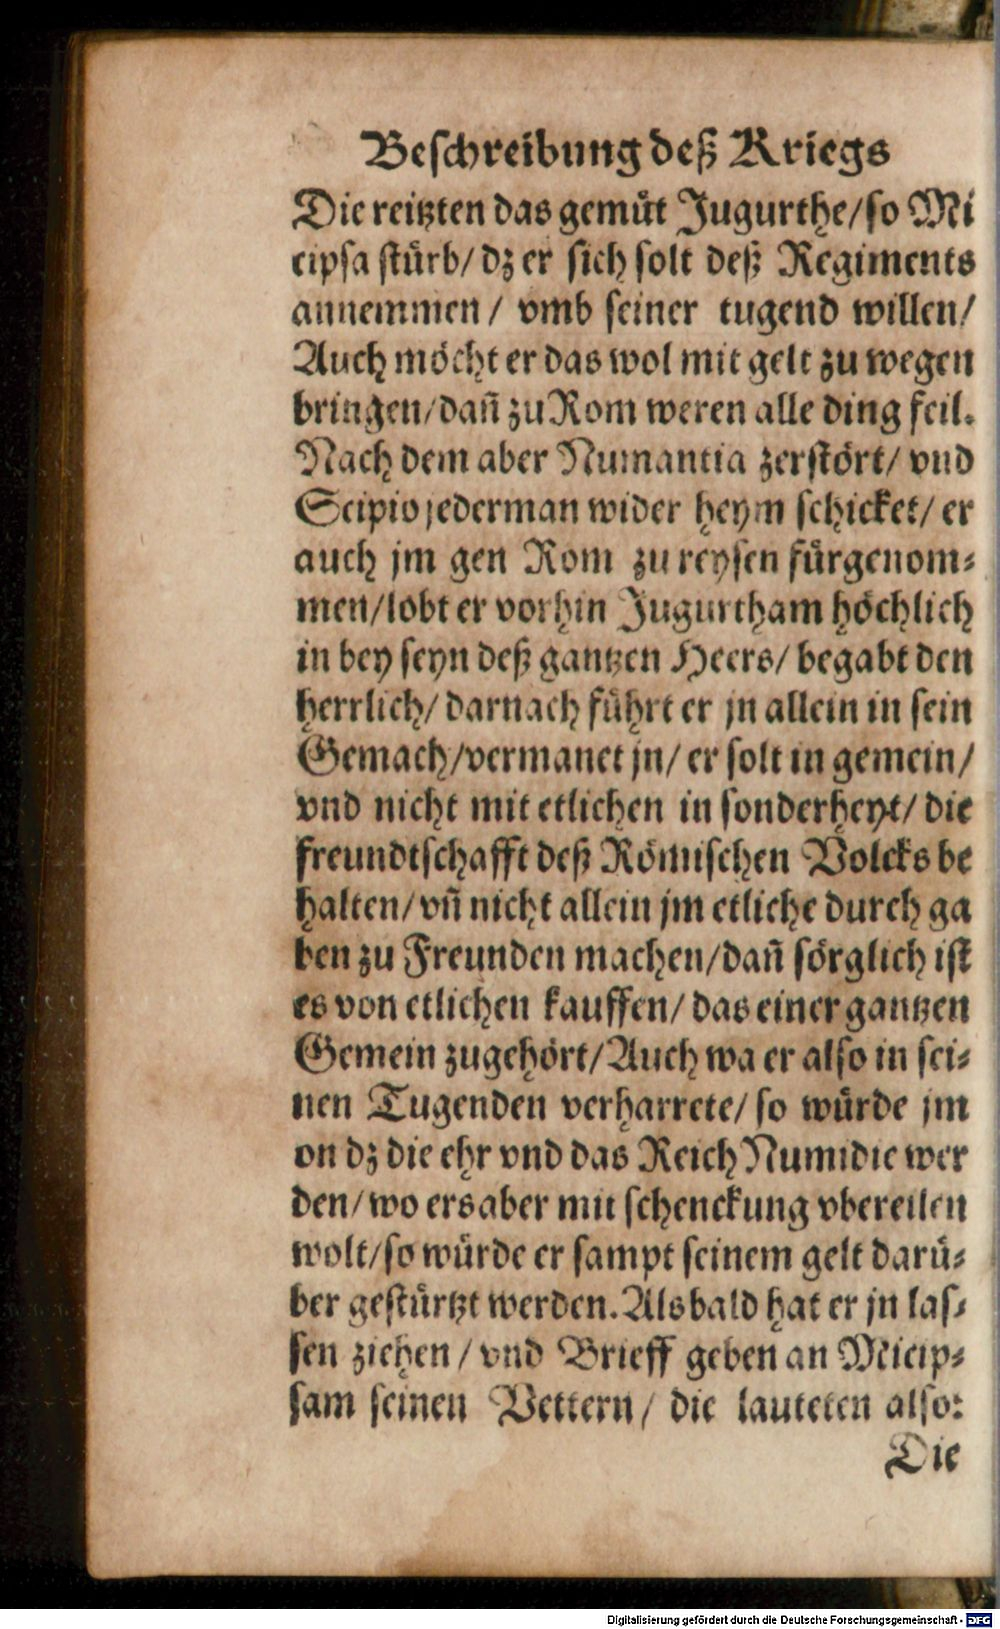 Beschreibung deß Kriegs
Die reitzten das gemuͤt Jugurthe/so Mi
cipsa stuͤrb/dz er sich solt deß Regiments
annemmen/ vmb seiner tugend willen/
Auch moͤcht er das wol mit gelt zu wegen
bringen/dañ zu Rom weren alle ding feil.
Nach dem aber Numantia zerstoͤrt/ vnd
Scipio jederman wider heym schicket/ er
auch jm gen Rom zu reysen fuͤrgenom⸗
men/lobt er vorhin Jugurtham hoͤchlich
in bey seyn deß gantzen Heers/ begabt den
herrlich/ darnach fuͤhrt er jn allein in sein
Gemach/vermanet jn/ er solt in gemein/
vnd nicht mit etlichen in sonderheyt/ die
freundtschafft deß Roͤmischen Volcks be
halten/vñ nicht allein jm etliche durch ga
ben zu Freunden machen/dañ soͤrglich ist
es von etlichen kauffen/ das einer gantzen
Gemein zugehoͤrt/Auch wa er also in sei⸗
nen Tugenden verharrete/ so wuͤrde jm
on dz die ehr vnd das Reich Numidie wer
den/wo ers aber mit schenckung vbereilen
wolt/so wuͤrde er sampt seinem gelt daruͤ⸗
ber gestuͤrtzt werden. Als bald hat er jn las⸗
sen ziehen/ vnd Brieff geben an Micip⸗
sam seinen Vettern/ die lauteten also:
Die
Digitalisierung gefördert durch die Deutsche Forschungsgemeinschaft - DFG